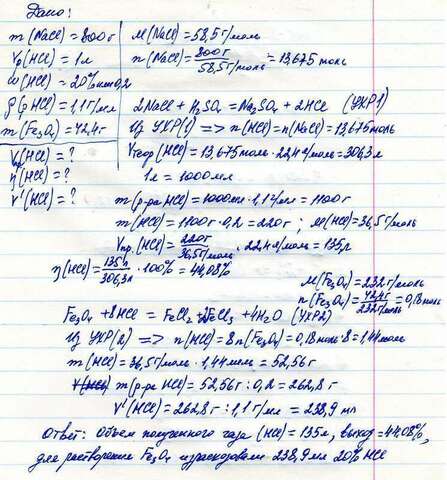 Дано:
m(NaCl) = 800г
Vр(HCl) = 1л
ω(HCl) = 20% или 0,2
ρ(р HCl) = 1,1 г/мл
m(Fe₃O₄) = 42,4г
Vпр(HCl) = ?
η(HCl) = ?
V'(HCl) = ?
M(NaCl) = 58,5г/моль
n(NaCl) = 800г / 58,5г/моль = 13,675 моль
2NaCl + H₂SO₄ = Na₂SO₄ + 2HCl (УХР1)
Из УХР(1) => n(HCl) = n(NaCl) = 13,675моль
Vтеор(HCl) = 13,675моль · 22,4л/моль = 306,3л
1л = 1000мл
m(р-ра HCl) = 1000мл · 1,1г/мл = 1100г
m(HCl) = 1100г · 0,2 = 220г ; M(HCl) = 36,5г/моль
Vпр.(HCl) = 220г / 36,5г/моль · 22,4л/моль = 135л
η(HCl) = 135л / 306,3л · 100% = 44,08%
M(Fe₃O₄) = 232г/моль
n(Fe₃O₄) = 42,4г / 232г/моль = 0,18моль
Fe₃O₄ + 8HCl = FeCl₂ + 2FeCl₃ + 4H₂O (УХР2)
Из УХР(2) => n(HCl) = 8n(Fe₃O₄) = 0,18моль · 8 = 1,44моль
m(HCl) = 36,5г/моль · 1,44моль = 52,56г
V(HCl) m(р-ра HCl) = 52,56г : 0,2 = 262,8г
V'(HCl) = 262,8г : 1,1 г/мл = 238,9 мл
Ответ: Объем полученного газа (HCl) = 135л, выход = 44,08%,
для растворения Fe₃O₄ израсходовали 238,9мл 20% HCl